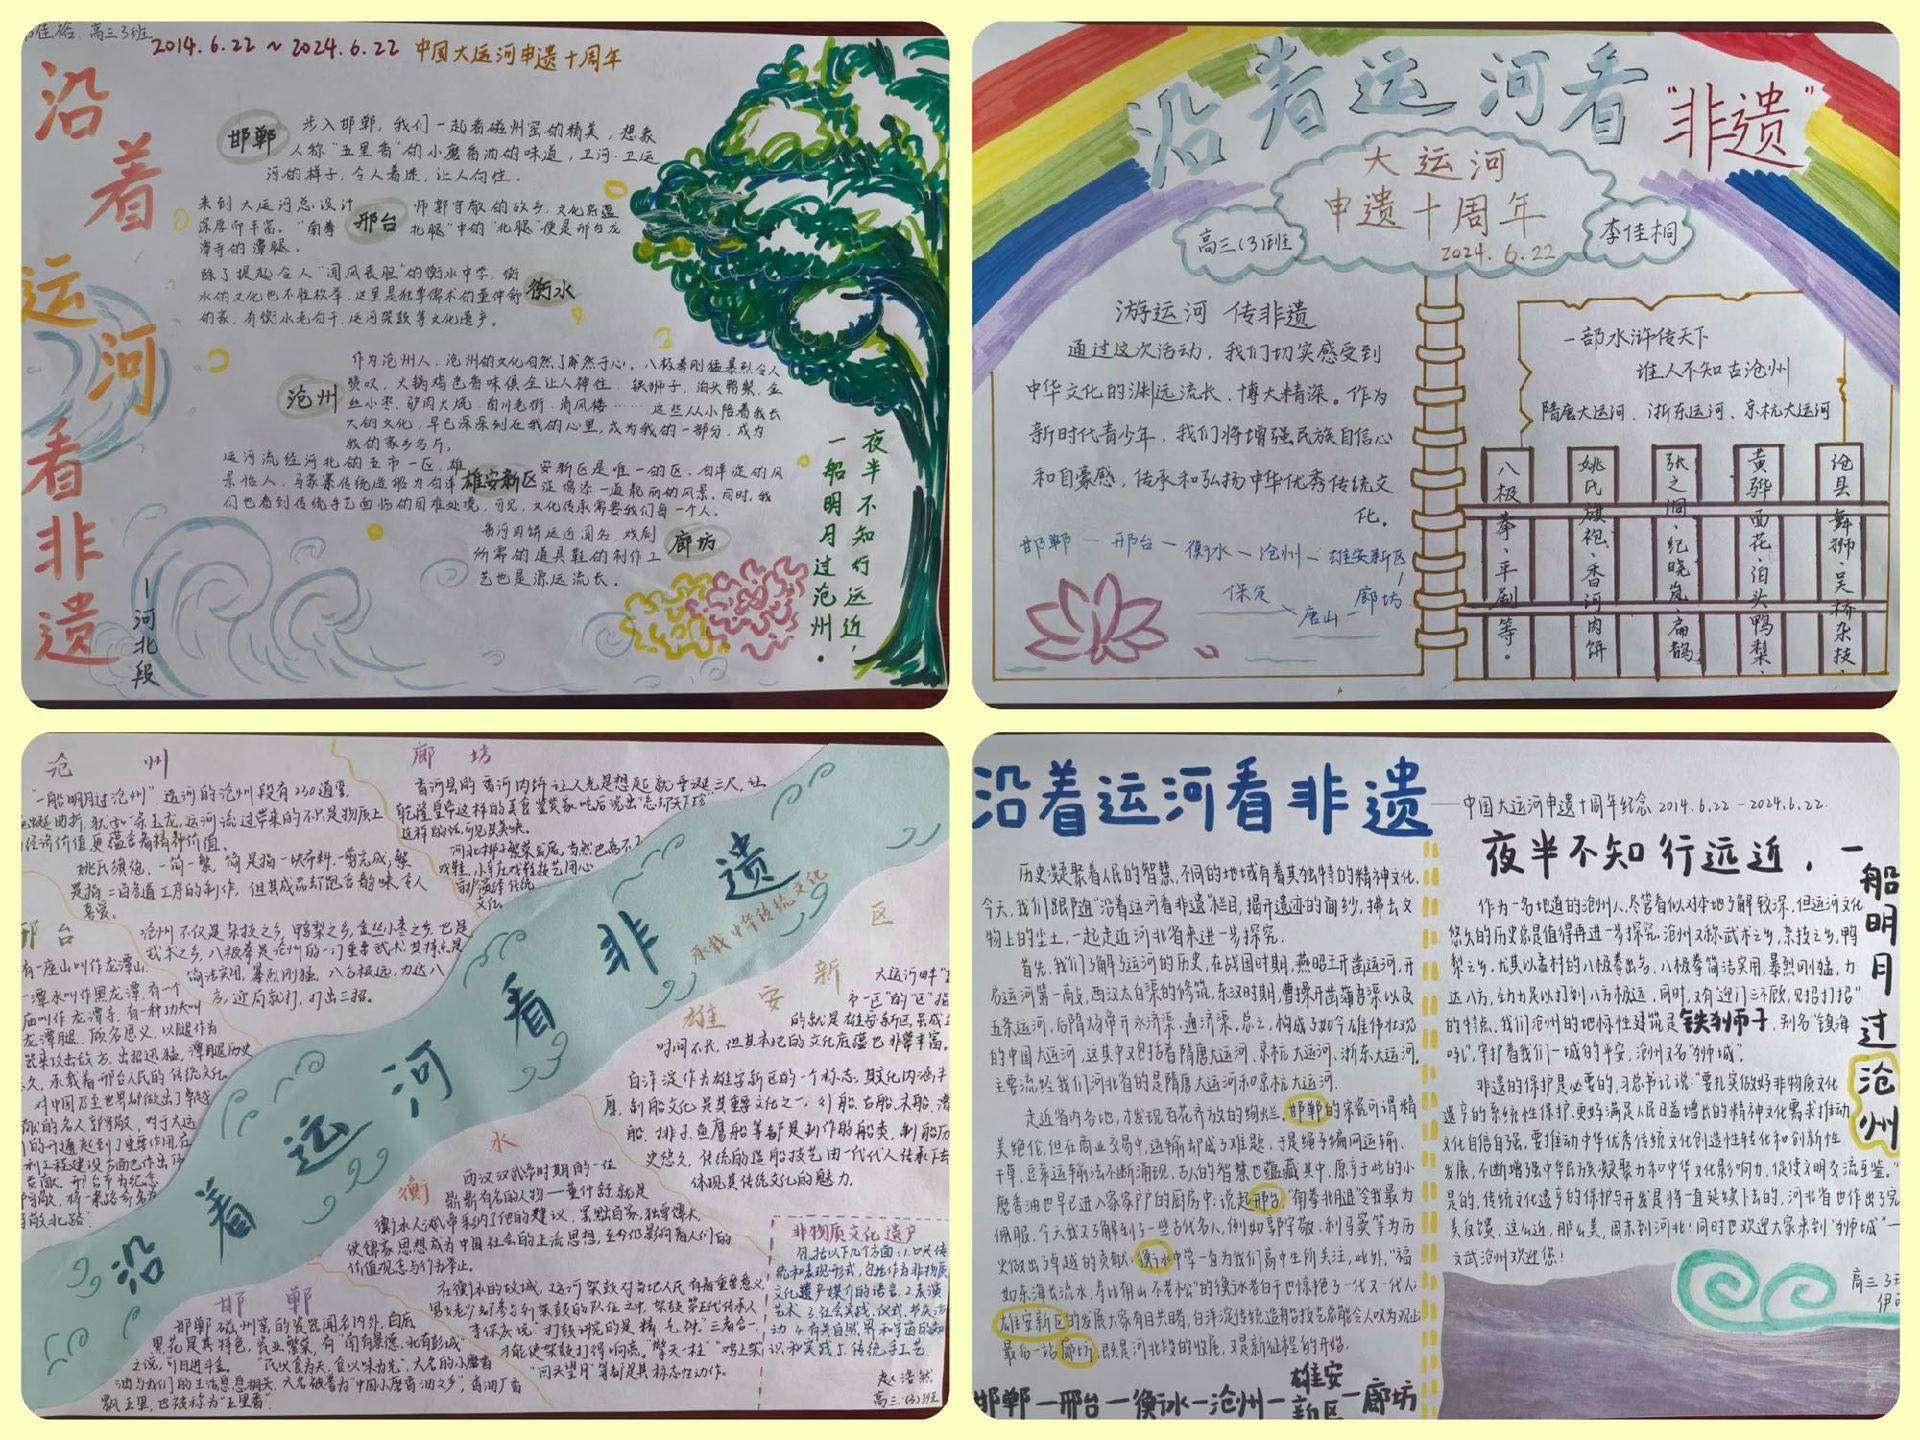 佳裕 高三3班
2014.6.22 ~ 2024.6.22 中国大运河申遗十周年
沿着运河看非遗
—河北段
邯郸
步入邯郸,我们一起看磁州窑的精美,想象
人称“五里香”的小磨香油的味道,卫河、卫运
河的样子,令人着迷,让人向往。
邢台
来到大运河总设计师郭守敬的故乡,文化底蕴
深厚而丰富。“南拳北腿”中的“北腿”便是邢台龙
潭寺的潭腿。
衡水
除了提起令人“闻风丧胆”的衡水中学,衡
水的文化也不胜枚举,这里是独尊儒术的董仲舒
的家,有衡水老白干、运河架鼓等文化遗产。
沧州
作为沧州人,沧州的文化自然了然于心。八极拳刚猛暴烈令人
赞叹,火锅鸡色香味俱全让人神往,铁狮子、泊头鸭梨、金
丝小枣、驴肉火烧、南川老街、清风楼……这些从小陪着我长
大的文化,早已深深刻在我的心里,成为我的一部分,成为
我的家乡名片。
雄安新区
运河流经河北的五市一区,雄安新区是唯一的区,白洋淀的风
景怡人,
们也看到传统手艺面临的困难处境,可见,文化传承需要我们每一个人。
廊坊
香河肉饼远近闻名,戏剧
所需的道具鞋的制作工
艺也是源远流长。
夜半不知行远近,
一船明月过沧州。
沿着运河看“非遗”
大运河
申遗十周年
2024.6.22
高三(3)班
李佳桐
游运河 传非遗
通过这次活动,我们切实感受到
中华文化的渊远流长,博大精深。作为
新时代青少年,我们将增强民族自信心
和自豪感,传承和弘扬中华优秀传统文
化。
邯郸—邢台—衡水—沧州—雄安新区
保定 唐山—廊坊
一部水浒传天下
谁人不知古沧州
隋唐大运河、浙东运河、京杭大运河
沧县舞狮、吴桥杂技、
黄骅面花、泊头鸭梨、
张之洞、纪晓岚、扁鹊
姚氏旗袍、香河肉饼
八极拳、平剧等。
沧州
“一船明月过沧州”运河的沧州段有230道弯,
蜿蜒曲折,犹如一条玉龙,运河流过带来的不只是物质上
经济价值更蕴含着精神价值。
姚氏旗袍,一简一繁,简是指一块布料一剪完成,繁
是指二百多道工序的制作,但其成品却饱含韵味,令人
喜爱。
沧州不仅是杂技之乡,鸭梨之乡,金丝小枣之乡,也是
武术之乡,八极拳是沧州的一门重要武术其特点是
简洁实用,暴烈刚猛,八方极远,力达八
方,近身就打,打出三招。
廊坊
香河县的香河肉饼让人光是想起就垂涎三尺,让
乾隆皇帝这样的美食鉴赏家吃后说出“忘却天下珍”
这样的话,可见其美味。
邢台
有一座山叫作龙潭山,
一潭水叫作黑龙潭,有一个
庙叫作龙潭寺,有一种功夫叫
龙潭腿,顾名思义,以腿作为
对中国乃至世界都做出了卓越
沿着运河看非遗
承载中华传统文化
雄安新区
大运河畔“五
市一区”的“区”指
的就是雄安新区,虽成立
时间不长,但其本地的文化底蕴也非常丰富。
白洋淀作为雄安新区的一个标志,其文化内涵丰
厚,制船文化是其重要文化之一,
船、排子、鱼鹰船等都是制作的船类,制船历
史悠久,传统的造船技艺由一代代人传承下去
体现其传统文化的魅力。
衡水
西汉汉武帝时期的一位
鼎鼎有名的人物—董仲舒就是
衡水人,汉武帝采纳了他的建议,罢黜百家,独尊儒术
使儒家思想成为中国社会的主流思想,至今仍影响着人们的
价值观念与行为举止。
在衡水的故城,运河架鼓对当地人民有着重要意义,
男女老少都参与到架鼓的队伍之中,架鼓第五代传承人
李保庆说:“打鼓讲究的是精、气、神”三者合一
才能使架鼓打得响亮,“擎天一柱”
等都是其标志性动作。
邯郸
邯郸磁州窑的瓷器闻名内外,白底
黑花是其特色,瓷业繁荣,有“南有景德,北有彭城”
之说,可日进斗金。“民以食为天,食以味为先”,大名的小磨香
油与我们的生活息息相关,大名被誉为“中国小磨香油之乡”,香油厂香
飘五里,也被称为“五里香”。
非物质文化遗产
包括以下几个方面:1.口头传
统和表现形式,包括作为非物质
文化遗产媒介的语言,2.表演
艺术 3.社会实践、仪式、节庆活
动 4.有关自然界和宇宙的知
识和实践 5.传统手工艺
赵浩然
高三(3)班
沿着运河看非遗
——中国大运河申遗十周年纪念 2014.6.22-2024.6.22.
夜半不知行远近,一船明月过沧州
历史凝聚着人民的智慧,不同的地域有着其独特的精神文化,
今天,我们跟随“沿着运河看非遗”栏目,揭开遗迹的面纱,拂去文
物上的尘土,一起走近河北省来进一步探究。
首先,我们了解了运河的历史,在战国时期,燕昭王开凿运河,开
启运河第一局点,西汉太白渠的修筑,东汉时期,曹操开凿蒲吾渠以及
五条运河,后隋炀帝开永济渠、通济渠,总之,构成了如今雄伟壮观
的中国大运河,这其中又包括着隋唐大运河、京杭大运河、浙东大运河,
主要流经我们河北省的是隋唐大运河和京杭大运河。
走近省内各地,才发现百花齐放的绚烂,邯郸的宋瓷可谓精
美绝伦,但在商业交易中,运输却成了难题,于是绳子编网运输、
干草、豆芽运输法不断涌现,古人的智慧也蕴藏其中,原产于此的小
磨香油也早已进入家家户户的厨房中;说起邢台,“南拳北腿”令我最为
佩服,今天我又了解到了一些古代名人,例如郭守敬、利马窦等为历
史做出了卓越的贡献;衡水中学一直为我们高中生所关注,此外,“福
如东海长流水,寿比南山不老松”的衡水老白干也惊艳了一代又一代人;
雄安新区的发展大家有目共睹,白洋淀传统造船技艺都能令人叹为观止
最后一站廊坊,既是河北段的收尾,又是新征程的开始。
邯郸—邢台—衡水—沧州—雄安新区—廊坊
作为一名地道的沧州人,尽管看似对本地了解较深,但运河文化
悠久的历史总是值得再进一步探究,沧州又称武术之乡,杂技之乡,鸭
梨之乡,尤其以孟村的八极拳出名,八极拳简洁实用,暴烈刚猛,力
达八方,动力足以打到八方极远,同时,又有“迎门三不顾,见招打招”
的特点。我们沧州的地标性建筑是铁狮子,别名“镇海
吼”,守护着我们一城的平安,沧州又名“狮城”。
非遗的保护是必要的,习总书记说:“要扎实做好非物质文化
遗产的系统性保护,更好满足人民日益增长的精神文化需求,推动
文化自信自强,要推动中华优秀传统文化创造性转化和创新性
发展,不断增强中华民族凝聚力和中华文化影响力,促使文明交流互鉴。”
是的,传统文化遗产的保护与开发是将一直延续下去的,河北省也作出了完
美反馈,这么近,那么美,周末到河北!同时也欢迎大家来到“狮城”—
文武沧州欢迎您!
高三3班